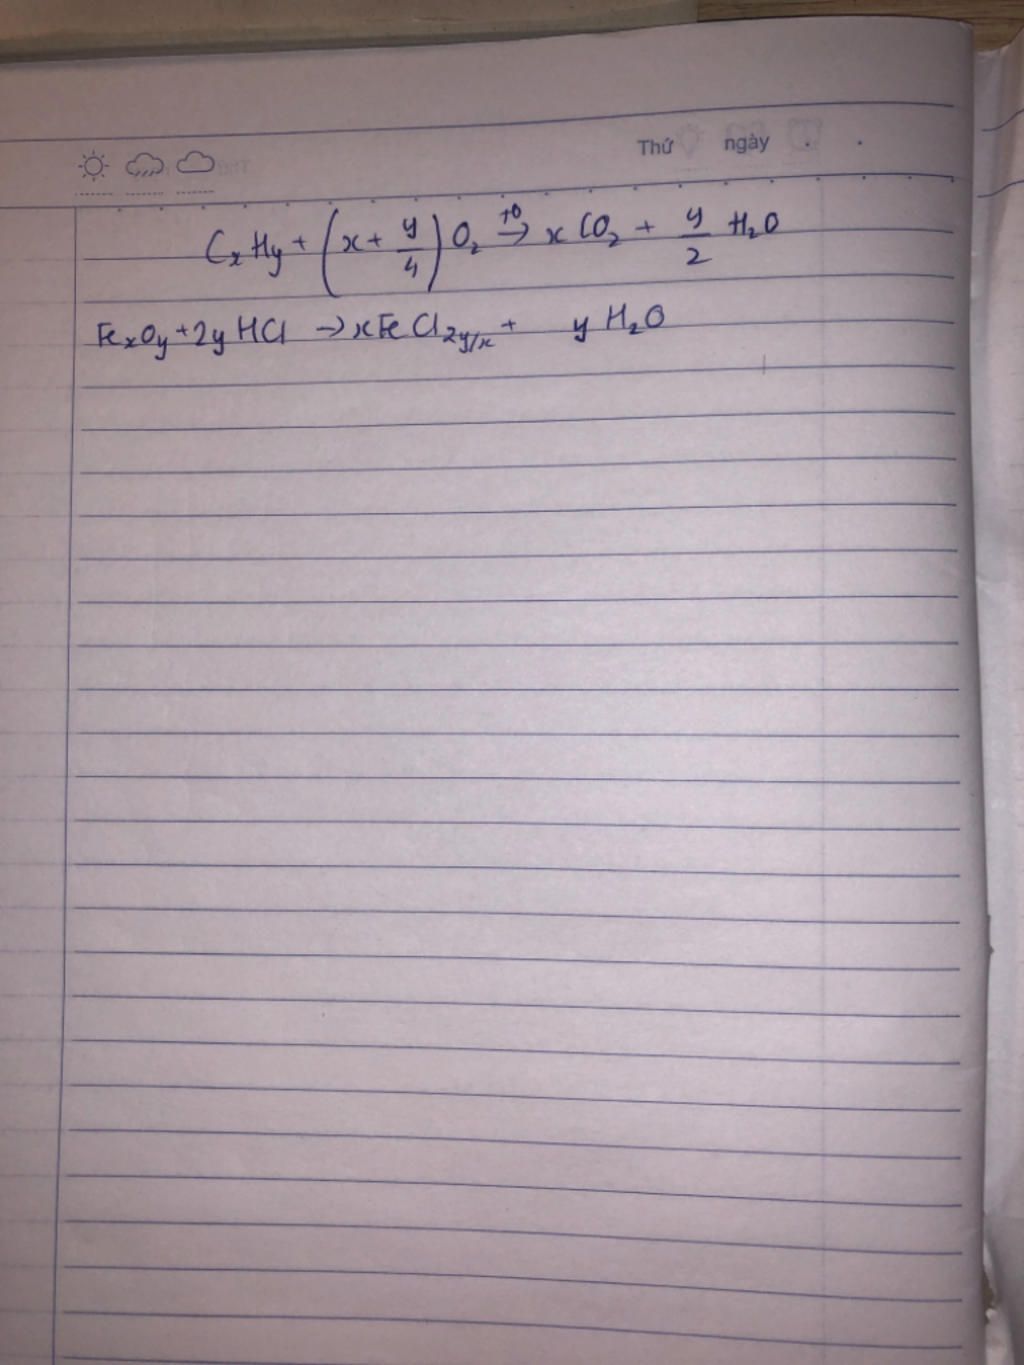 Thứ ngày . .
CₓHy + (x + y/4) O₂ →t⁰ x CO₂ + y/2 H₂O
FeₓOy + 2y HCl → x FeCl₂y/ₓ + y H₂O